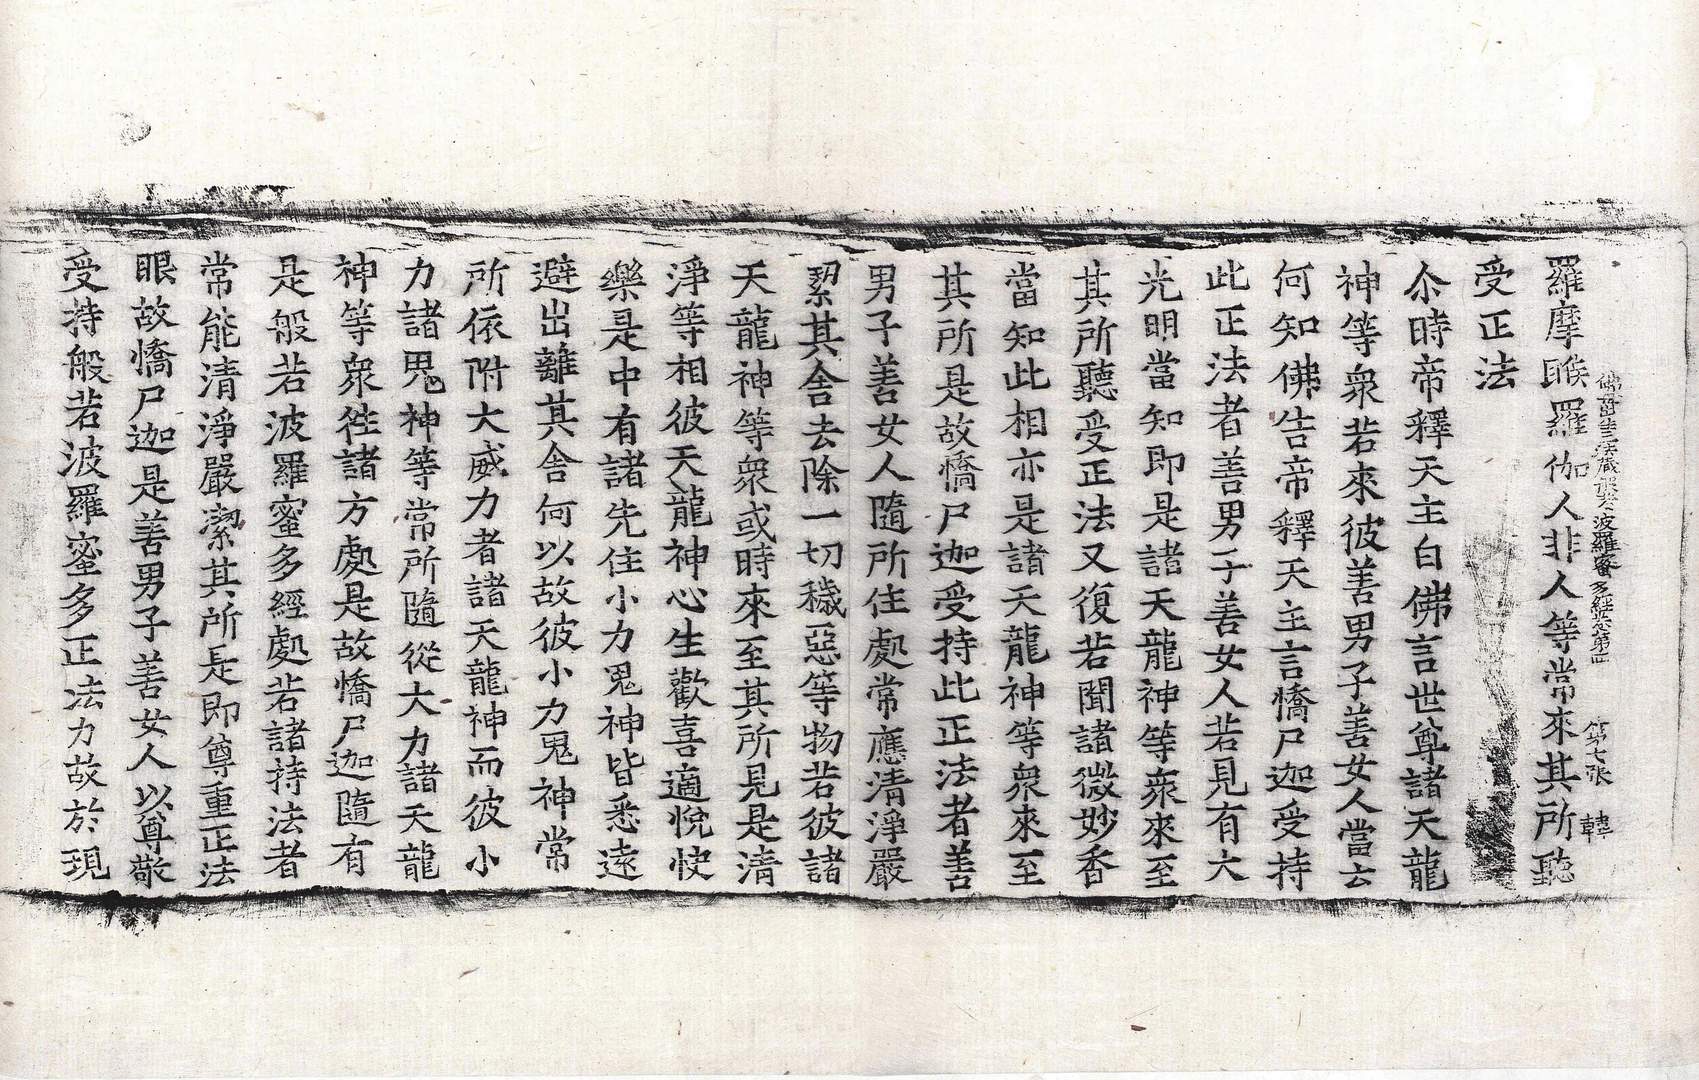 佛母出生三法藏般若波羅蜜多經卷第四　第七張　韓
羅摩睺羅伽人非人等常來其所聽
受正法
尒時帝釋天主白佛言世尊諸天龍
神等衆若來彼善男子善女人當云
何知佛告帝釋天主言憍尸迦受持
此正法者善男子善女人若見有大
光明當知即是諸天龍神等衆來至
其所聽受正法又復若聞諸微妙香
當知此相亦是諸天龍神等衆來至
其所是故憍尸迦受持此正法者善
男子善女人隨所住處常應清淨嚴
絜其舍去除一切穢惡等物若彼諸
天龍神等衆或時來至其所見是清
淨等相彼天龍神心生歡喜適悅快
樂是中有諸先住小力鬼神皆悉遠
避出離其舍何以故彼小力鬼神常
所依附大威力者諸天龍神而彼小
力諸鬼神等常所隨從大力諸天龍
神等衆往諸方處是故憍尸迦隨有
是般若波羅蜜多經處若諸持法者
常能清淨嚴潔其所是即尊重正法
眼故憍尸迦是善男子善女人以尊敬
受持般若波羅蜜多正法力故於現